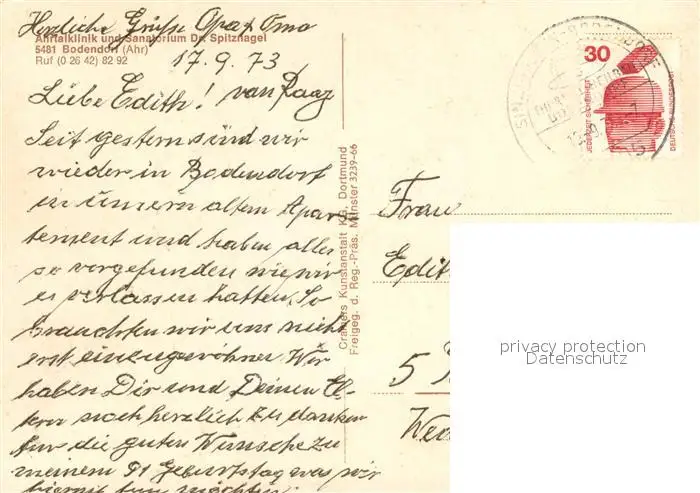 Herzliche Grüsse Opa + Oma
Ahrtalklinik und Sanatorium Dr. Spitznagel
5481 Bodendorf (Ahr)
Ruf (0 26 42) 82 92
17.9.73
Liebe Edith! van Raay
Seit gestern sind wir
wieder in Bodendorf
in unserm alten Apar-
tement und haben alles
so vorgefunden wie wir
es verlassen hatten. So
brauchten wir uns nicht
erst einzugewöhnen. Wir
haben Dir und Deinen El-
tern noch herzlich zu danken
für die guten Wünsche zu
meinem 91 Geburtstag was wir
hiermit tun möchten.
Cramers Kunstanstalt KG, Dortmund
Freigeg. d. Reg.-Präs. Münster 3239-66
30
JEDERZEIT SICHERHEIT
DEUTSCHE BUNDESPOST
Frau
Edith
5
privacy protection
Datenschutz